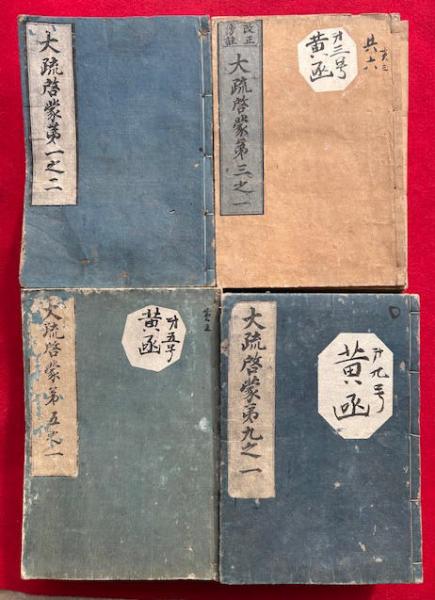 大疏啓蒙第一之二
改正
傍註
大疏啓蒙第三之一
才三号
黄函
共六
大疏啓蒙第五之一
才五号
黄函
大疏啓蒙第九之一
才九号
黄函